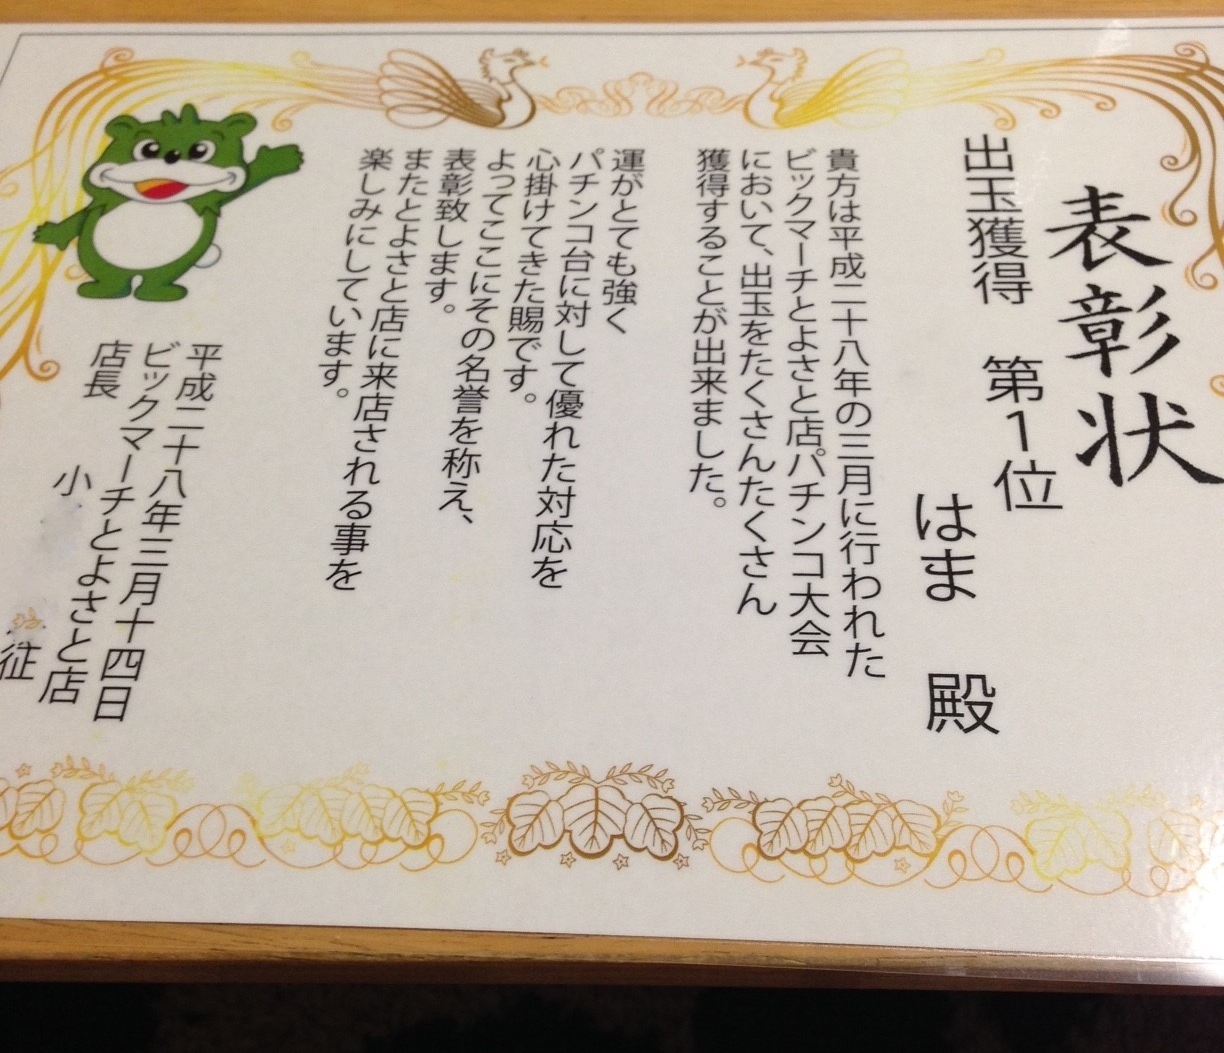 表彰状
出玉獲得 第1位
はま 殿
貴方は平成二十八年の三月に行われた
ビックマーチとよさと店パチンコ大会
において、出玉をたくさんたくさん
獲得することが出来ました。
運がとても強く
パチンコ台に対して優れた対応を
心掛けてきた賜です。
よってここにその名誉を称え、
表彰致します。
またとよさと店に来店される事を
楽しみにしています。
平成二十八年三月十四日
ビックマーチとよさと店
店長 小